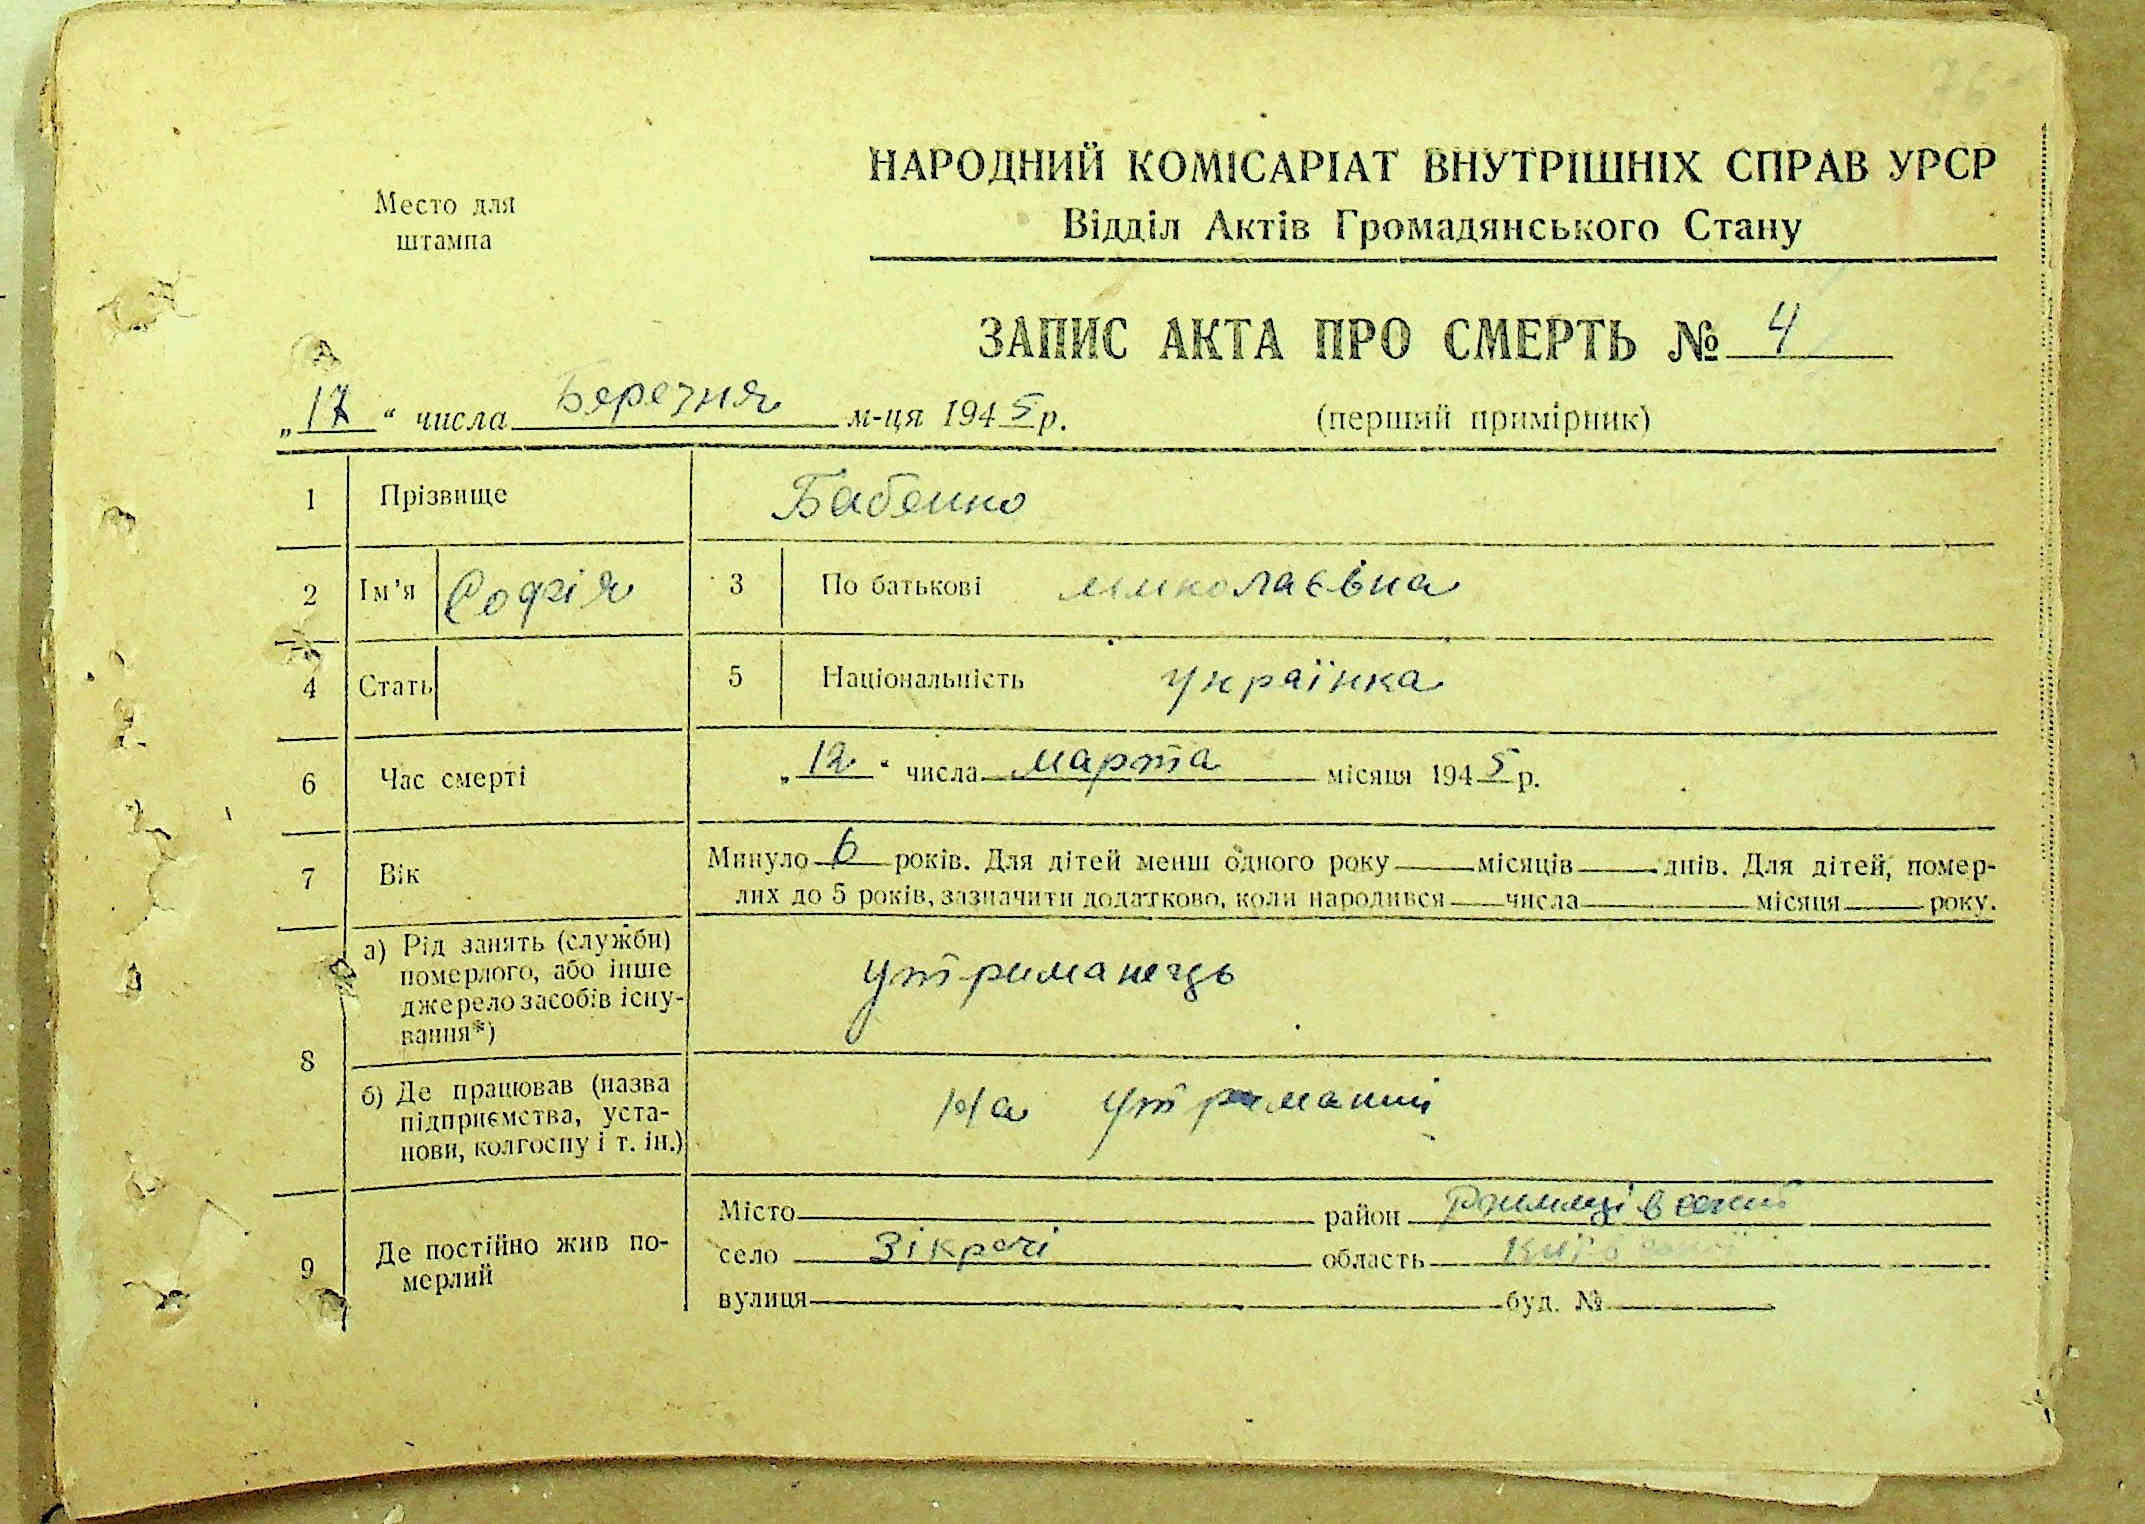 76
НАРОДНИЙ КОМІСАРІАТ ВНУТРІШНІХ СПРАВ УРСР
Место для
штампа
Відділ Актів Громадянського Стану
ЗАПИС АКТА ПРО СМЕРТЬ № 4
„17“ числа Березня м-ця 1945 р. (перший примірник)
1 Прізвище Бабенко
2 Ім'я Софія 3 По батькові Миколаєвна
4 Стать 5 Національність Українка
6 Час смерті „12“ числа марта місяця 1945 р.
7 Вік Минуло 6 років. Для дітей менш одного року місяців днів. Для дітей, помер-
лих до 5 років, зазначити додатково, коли народився числа місяця року.
8 а) Рід занять (служби)
померлого, або інше
джерело засобів існу-
вання*)
утриманець
б) Де працював (назва
підприємства, уста-
нови, колгоспу і т. ін.)
На утриманні
9 Де постійно жив по-
мерлий
Місто район Ржищівський
село Зікрачі область Київської
вулиця буд. №